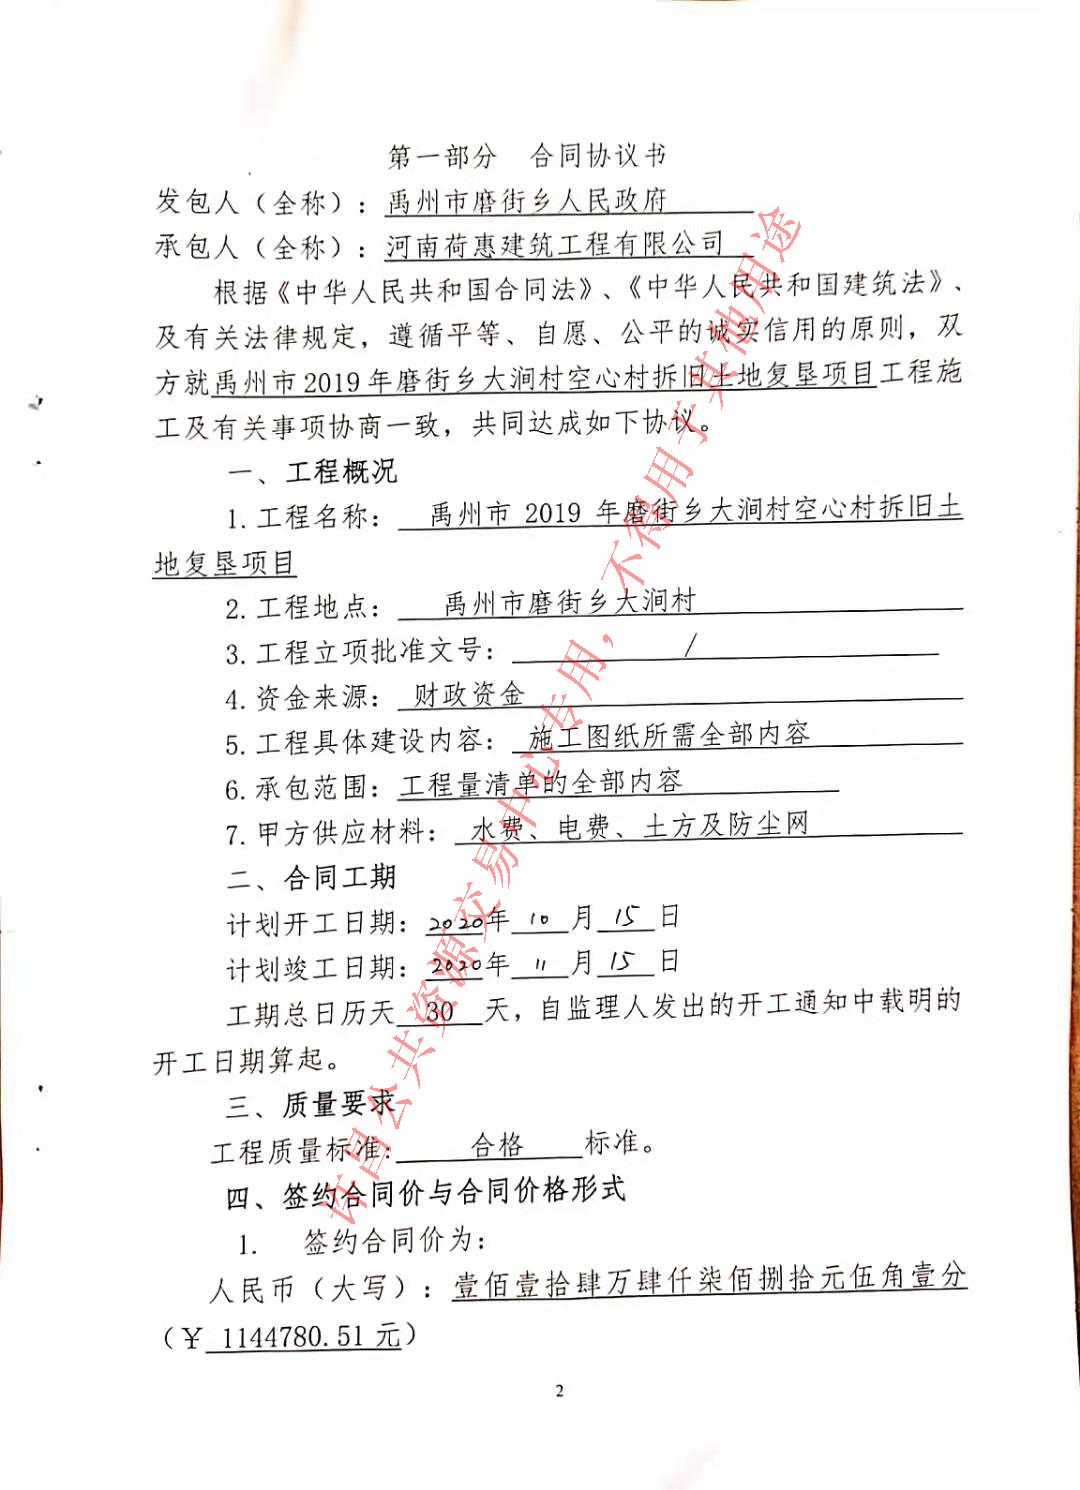 第一部分 合同协议书
发包人（全称）：禹州市磨街乡人民政府
承包人（全称）：河南荷惠建筑工程有限公司
根据《中华人民共和国合同法》、《中华人民共和国建筑法》、
及有关法律规定，遵循平等、自愿、公平的诚实信用的原则，双
方就禹州市2019年磨街乡大涧村空心村拆旧土地复垦项目工程施
工及有关事项协商一致，共同达成如下协议。
一、工程概况
1.工程名称： 禹州市 2019 年磨街乡大涧村空心村拆旧土
地复垦项目
2.工程地点： 禹州市磨街乡大涧村
3.工程立项批准文号： /
4.资金来源： 财政资金
5.工程具体建设内容： 施工图纸所需全部内容
6.承包范围：工程量清单的全部内容
7.甲方供应材料： 水费、电费、土方及防尘网
二、合同工期
计划开工日期：2020年 10 月 15 日
计划竣工日期：2020年 11 月 15 日
工期总日历天 30 天，自监理人发出的开工通知中载明的
开工日期算起。
三、质量要求
工程质量标准: 合格 标准。
四、签约合同价与合同价格形式
1. 签约合同价为：
人民币（大写）：壹佰壹拾肆万肆仟柒佰捌拾元伍角壹分
（￥ 1144780.51 元）
2
许昌公共资源交易中心专用，不得用于其他用途